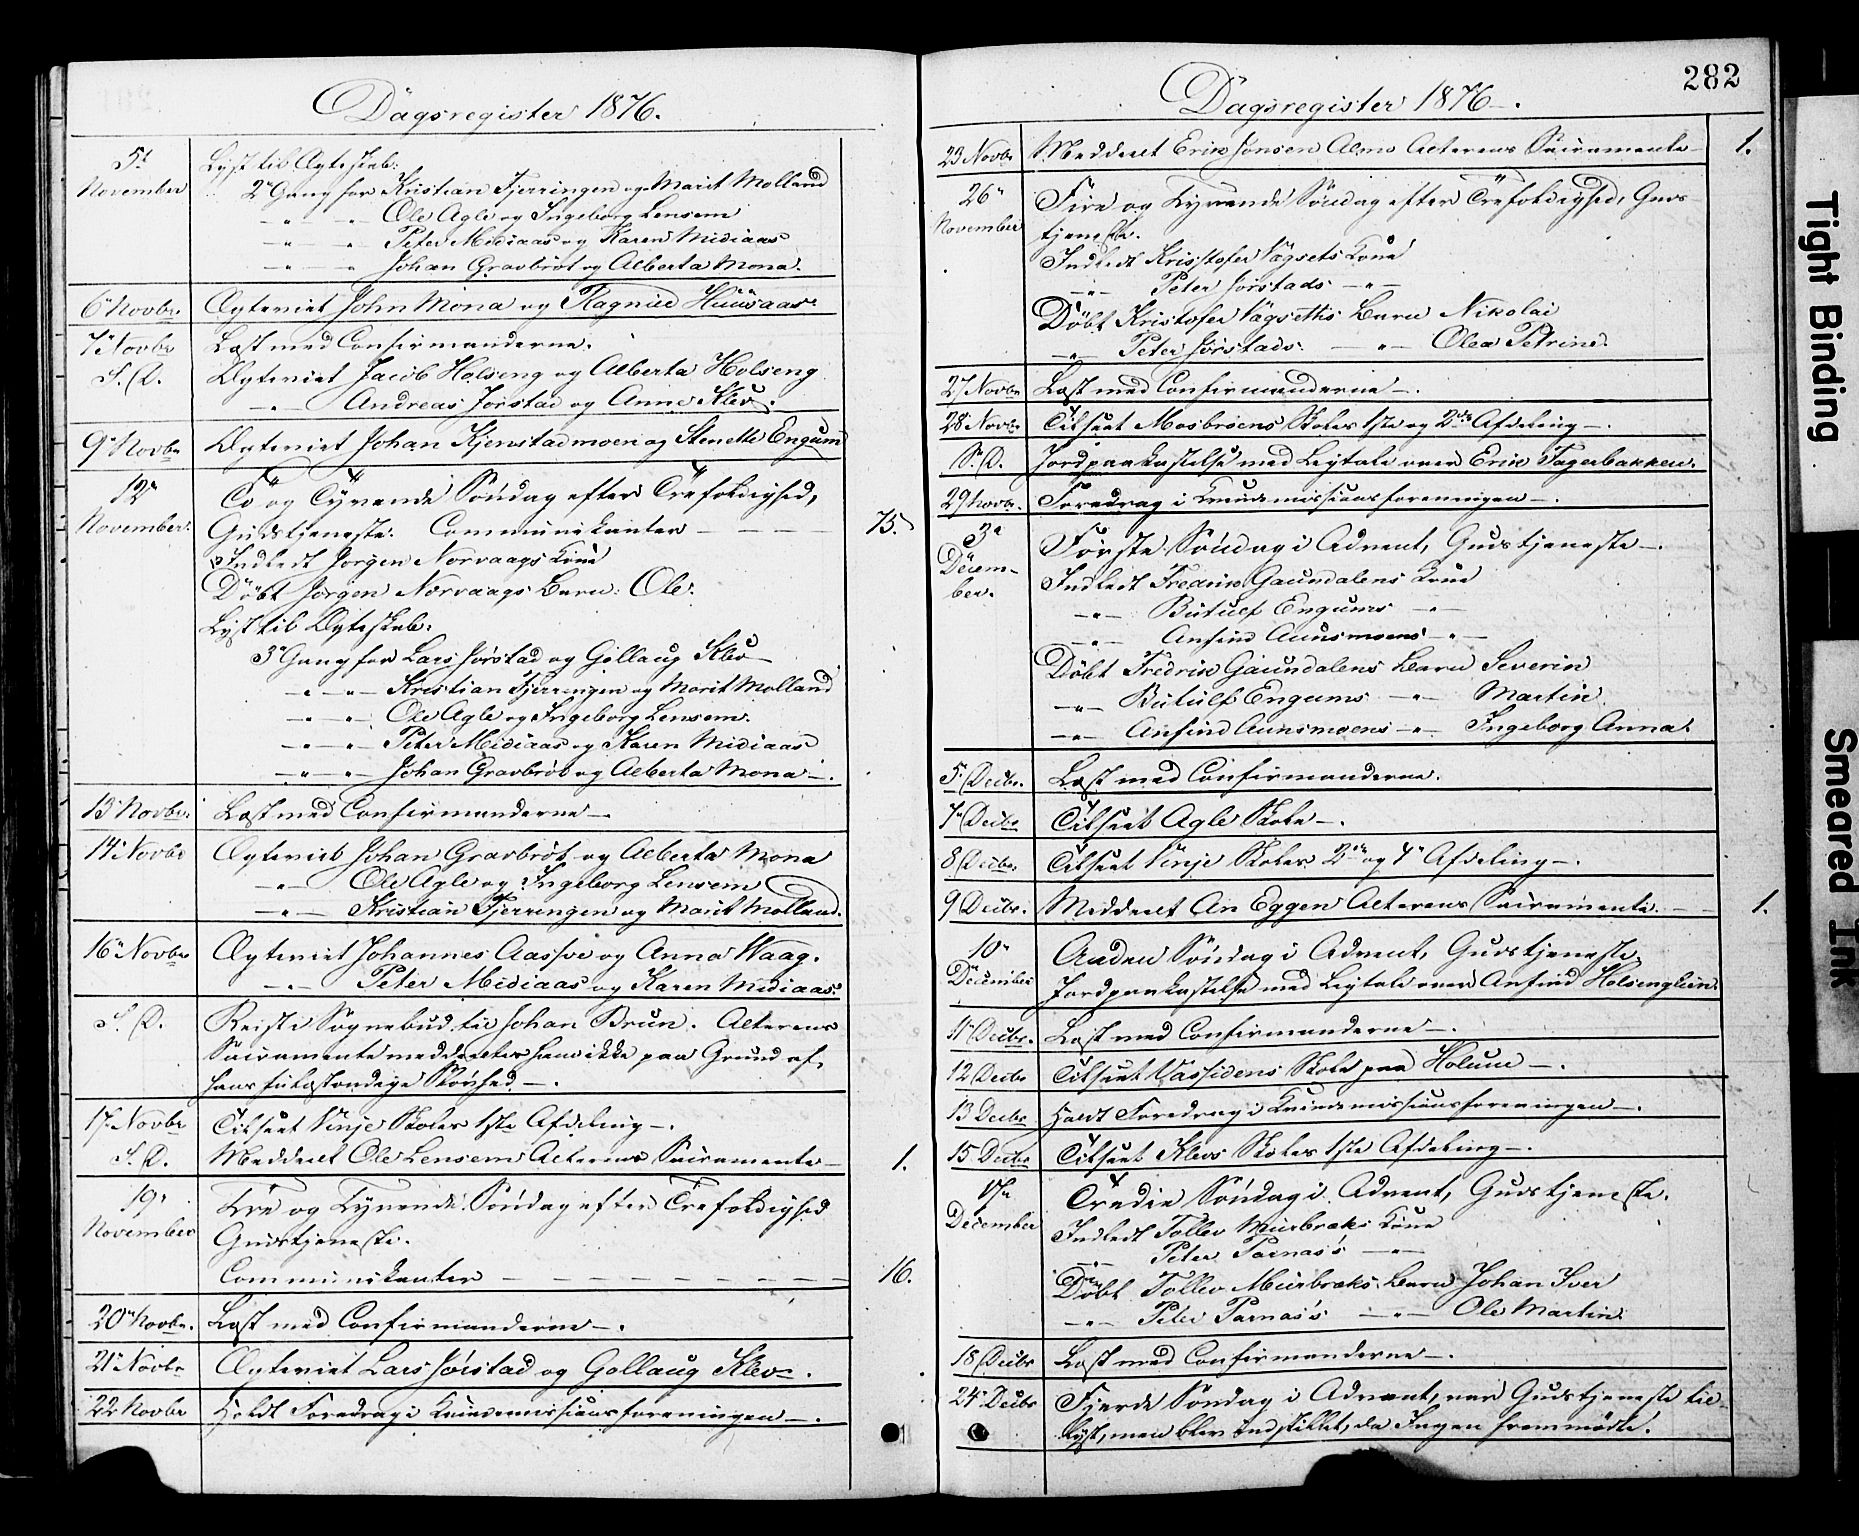 Dagsregister 1876.
5t November
Lyst til Ægteskab:
2" Gang for Kristian Fjerringen og Marit Molland
" " Ole Agle og Ingeborg Lensem
" " Peter Midiaas og Karen Midiaas
" " Johan Gravbröt og Alberta Mona.
6" Novbr. Ægteviet John Mona og Ragnild Huusaas
7" Novbr Læst med Confirmanderne.
S. D. Ægteviet Jacob Holseng og Alberta Holseng
" Andreas Jorstad og Anne Klev.
9" Novbr Ægteviet Johan Kjenstadmoen og Stenette Engum
12" November. To og Tyvende Söndag efter Trefoldighed,
Gudstjeneste. Communikanter — — 75.
Indledt Jörgen Norvaags Kone
Döbt Jörgen Norvaags Barn: Ole.
Lyst til Ægteskab:
3" Gang for Lars Jörstad og Gollaug Klev
" " Kristian Fjerringen og Marit Molland
" " Ole Agle og Ingeborg Lensem.
" " Peter Midiaas og Karen Midiaas
" " Johan Gravbröt og Alberta Mona.
13" Novbr. Læst med Confirmanderne.
14" Novbr Ægteviet Johan Gravbröt og Alberta Mona
" Ole Agle og Ingeborg Lensem
" Kristian Fjerringen og Marit Molland.
16" Novbr Ægteviet Johannes Aasve og Anna Waag.
" Peter Midiaas og Karen Midiaas.
S. D. Reist i Sognebud til Johan Brun. Alterens
Sacramente meddeeltes ham ikke paa Grund af
hans Slövhed.
17" Novbr Tilseet Vinje Skoles 1ste Afdeling.
S. D. Meddeelt Ole Lensem Alterens Sacramente 1.
19" November Tre og Tyvende Söndag efter Trefoldighed
Gudstjeneste.
Communikanter — — — 16.
20" Novbr. Læst med Confirmanderne.
21" Novbr Ægteviet Lars Jörstad og Gollaug Klev.
22 Novbr Holdt Foredrag i Kvindemissionsforeningen.
282
Dagsregister 1876.
23 Novbr Meddeelt Erik Jonsen Almo Alterens Sacramente 1.
26" November Fire og Tyvende Söndag efter Trefoldighed, Guds-
tjeneste.
Indledt Kristofer Vägsets Kone
" Peter Jörstads "
Döbt Kristofer Vägsetts Barn Nikolai
" Peter Jörstads " Olea Petrine.
27 Novbr Læst med Confirmanderne.
28 Novbr. Tilseet Mosbröens Skoles 1ste og 2den Afdeling.
S. D. Jordpaakastelse med Ligtale over Erik Fagerbakken.
29 Novbr. Foredrag i Kvindemissionsforeningen.
3" Decem-
ber. Förste Söndag i Advent, Gudstjeneste.
Indledt Fredrik Gaundalens Kone
" Butulf Engums "
" Anfind Aunsmoens "
Döbt Fredrik Gaundalens Barn Severin
" Butulf Engums " Martin.
" Anfind Aunsmoens " Ingeborg Anna.
5" Decbr. Læst med Confirmanderne.
7" Decbr Tilseet Agle Skole.
8" Decbr. Tilseet Vinje Skoles 2den og 4" Afdeling.
9 Decbr. Meddeelt An Eggen Alterens Sacramente. 1.
10" December Anden Söndag i Advent, Gudstjeneste.
Jordpaakastelse med Ligtale over Anfind Holsenglien.
11" Decbr. Læst med Confirmanderne.
12 Decbr Tilseet Skole paa Holum.
13 Decbr Holdt Foredrag i Kvindemissionsforeningen.
15 Decbr Tilseet Klevs Skoles 1ste Afdeling.
17" December Tredie Söndag i Advent, Gudstjeneste.
Indledt Tollev Murbræks Kone
" Peter Parnas's "
Döbt Tollev Murbræks Barn Johan Iver
" Peter Parnas's " Ole Martin.
18 Decbr Læst med Confirmanderne.
24" Decbr Fjerde Söndag i Advent, var Gudstjeneste til-
lyst, men blev Indstillet, da Ingen fremmödte.
Tight Binding
Smeared Ink